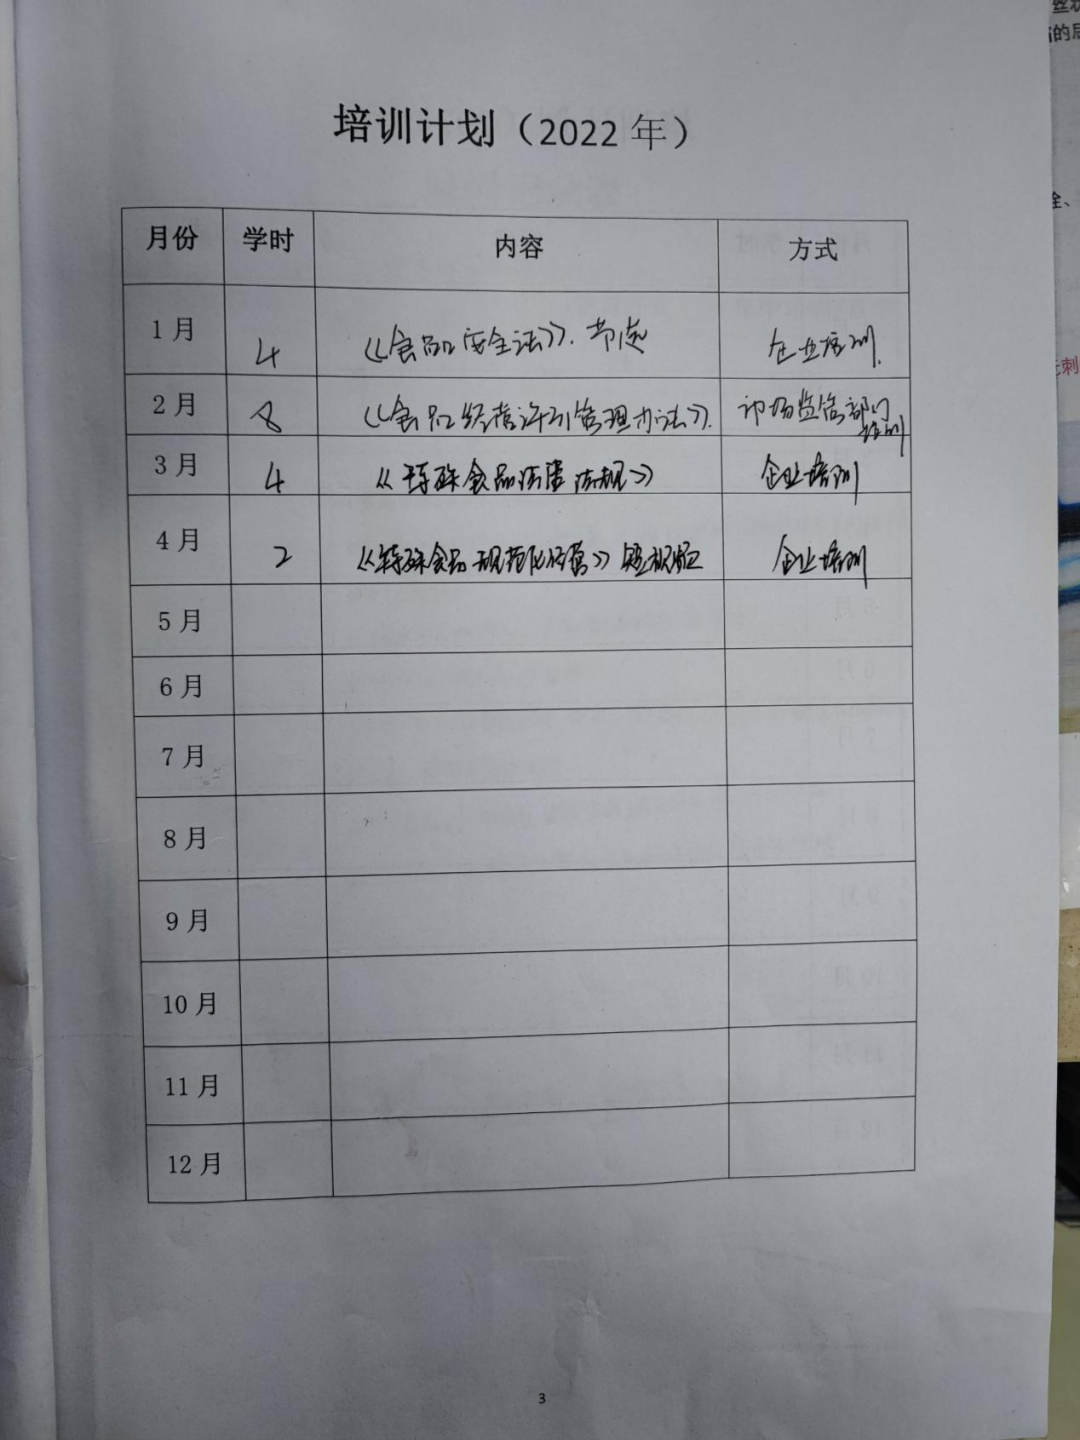 培训计划（2022 年）
月份 学时 内容 方式
1 月 4 《食品安全法》.节选 企业培训.
2 月 8 《食品经营许可管理办法》. 市场监管部门
培训
3 月 4 《特殊食品法律法规》 企业培训
4 月 2 《特殊食品规范化经营》短视频 企业培训
5 月
6 月
7 月
8 月
9 月
10 月
11 月
12 月
3